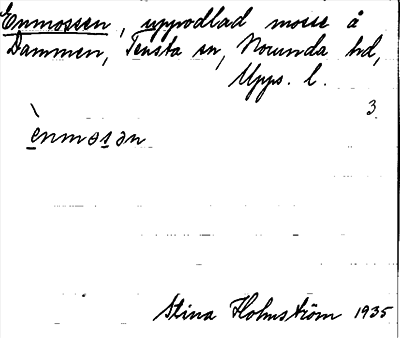 Enmossen, uppodlad mosse å
Dammen, Tensta sn, Norunda hd,
Upps. l.
3.
ènmosən
Stina Holmström 1935